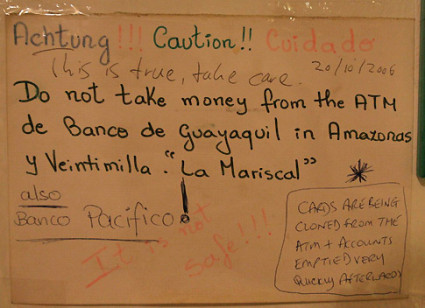 Achtung!!! Caution!! Cuidado
This is true, take care. 20/10/2006
Do not take money from the ATM
de Banco de Guayaquil in Amazonas
y Veintimilla. "La Mariscal"
also
Banco Pacifico!
It is not
safe!!!
CARDS ARE BEING
CLONED FROM THE
ATM + ACCOUNTS
EMPTIED VERY
QUICKLY AFTERWARDS